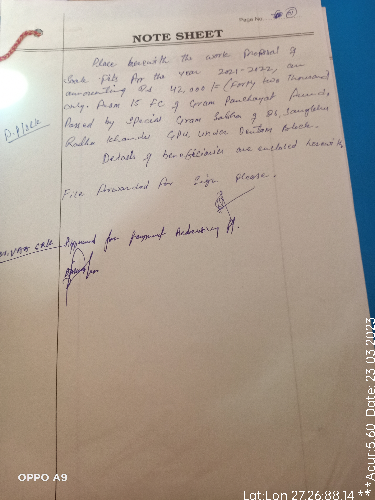 Page No.
NOTE SHEET
Place herewith the work Proposal of
Soak Pits for the year 2021-2022, an
amounting Rs 42,000/= (Forty two thousand)
only. From 15 FC of Gram Panchayat Funds,
Passed by Special Gram Sabha of 06,
Radhu Khandu GPU under Block.
Details of beneficiaries are enclosed herewith
File forwarded for Sign Please.
Approved for Payment
OPPO A9
Lat:Lon 27.26:88.14 ***Acur:5.60 Date: 23 03 2023